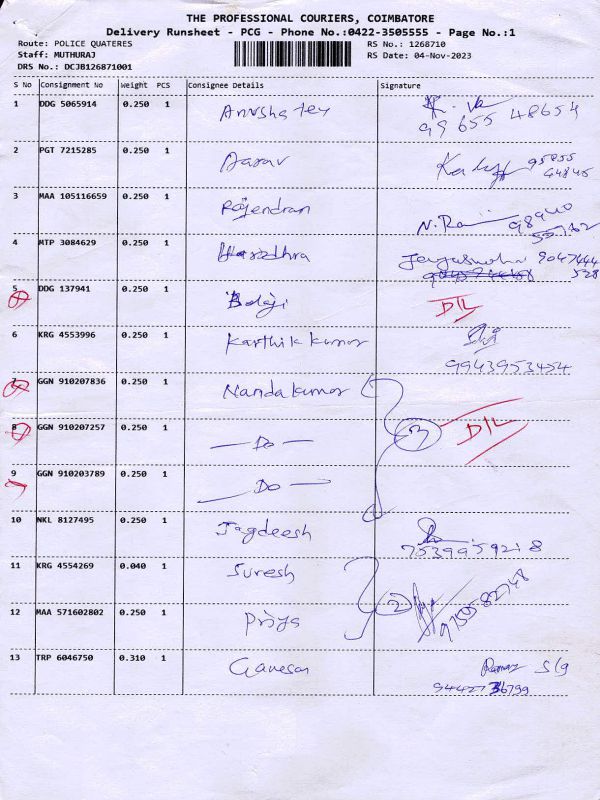 THE PROFESSIONAL COURIERS, COIMBATORE
Delivery Runsheet - PCG - Phone No.:0422-3505555 - Page No.:1
Route: POLICE QUATERES RS No.: 1268710
Staff: MUTHURAJ RS Date: 04-Nov-2023
DRS No.: DCJB126871001
S No Consignment No Weight PCS Consignee Details Signature
1 DDG 5065914 0.250 1
99 655 48654
2 PGT 7215285 0.250 1 Aarav
3 MAA 105116659 0.250 1 Rajendran
4 MTP 3084629 0.250 1
5 DDG 137941 0.250 1 Balaji D/L
6 KRG 4553996 0.250 1 Karthik kumar
9943953454
7 GGN 910207836 0.250 1 Nanda kumar
8 GGN 910207257 0.250 1 — Do — 3 D/L
9 GGN 910203789 0.250 1 — Do —
10 NKL 8127495 0.250 1 Jagdeesh
7539959218
11 KRG 4554269 0.040 1 Suresh
2 9750582748
12 MAA 571602802 0.250 1 Priya
13 TRP 6046750 0.310 1 Ganesan